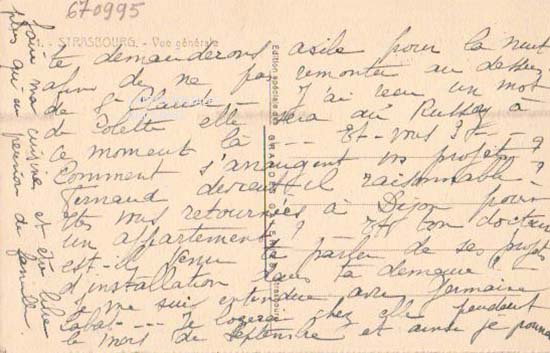 670995
STRASBOURG. - Vue générale
te demanderons asile pour la nuit
afin de ne pas remonter au dessus
de St Claude. J'ai reçu un mot
de Colette elle sera au Russey à
ce moment là --- Et-vous?
Comment s'arrangent vos projets?
Fernand devient-il raisonnable?
Etes vous retournées à Dijon pour
un appartement? Et ton docteur
est-il venu te parler de ses projets
d'installation dans ta
Je me suis entendue avec Germaine
Labat --- Je logerai chez elle pendant
le mois de Septembre et ainsi je pourrai
faire ma cuisine et être libre
plus qu'en pension de famille.
Edition spéciale des
GRANDS
Strasbourg